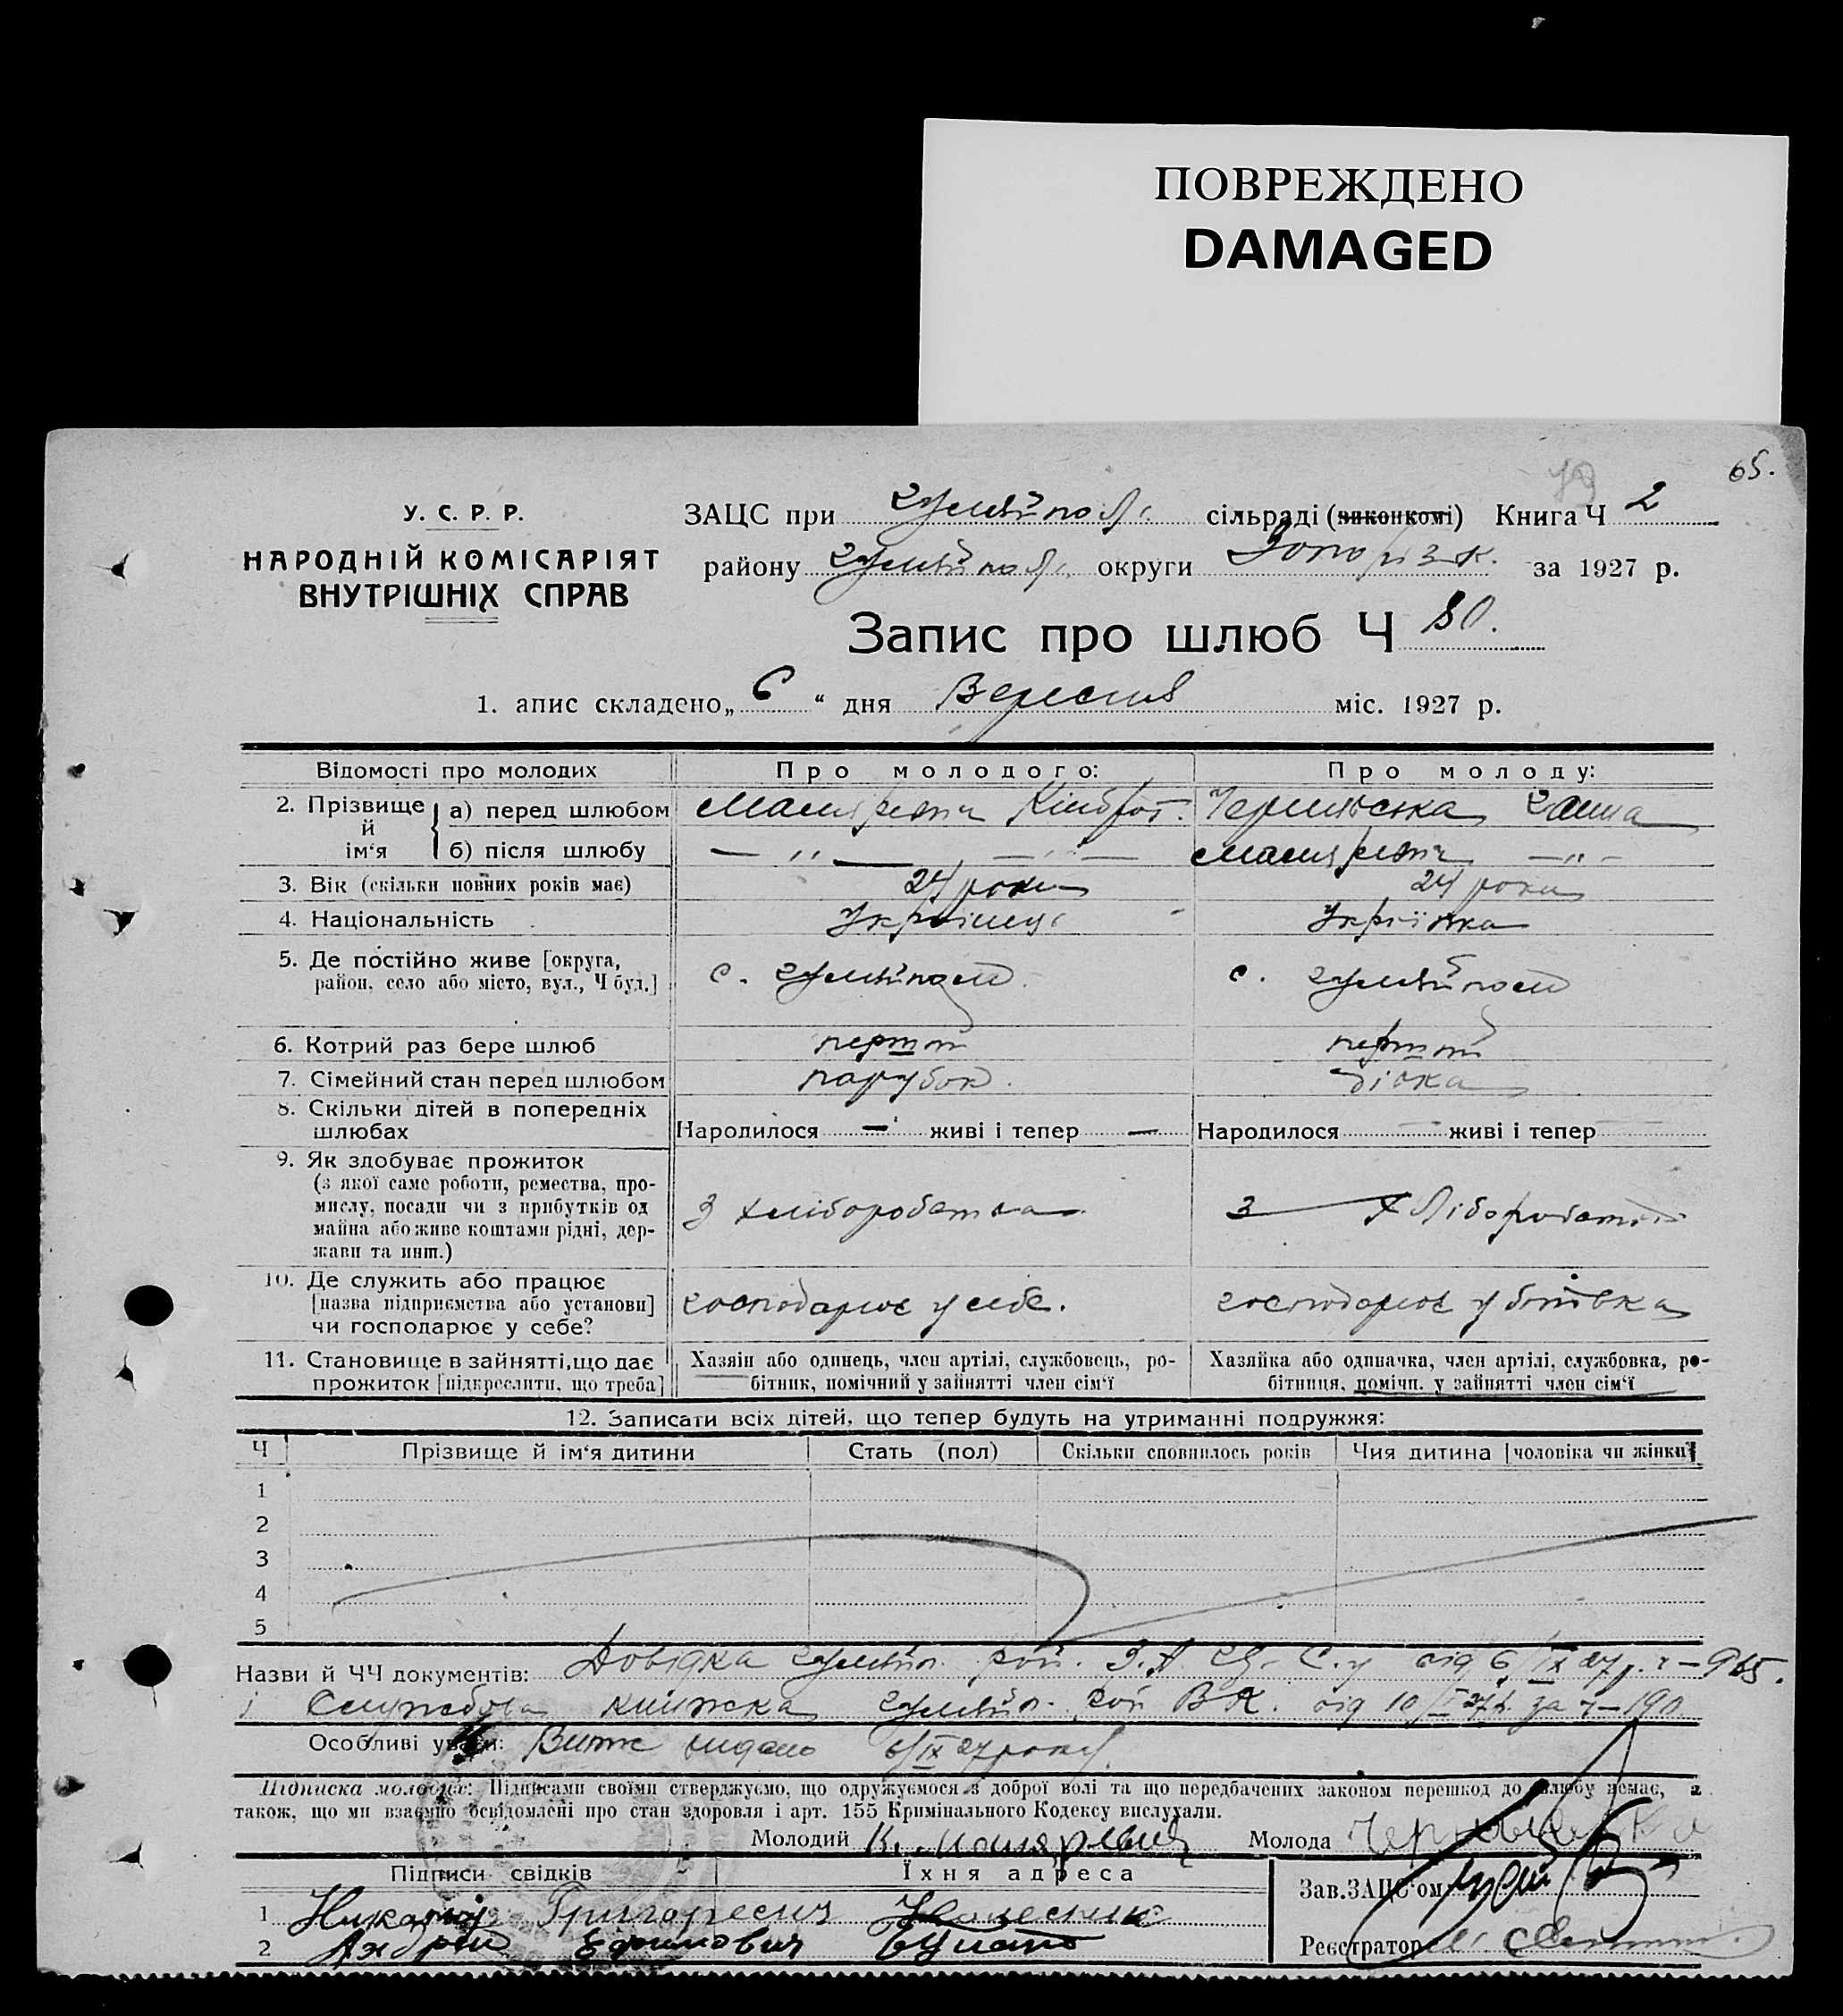 ПОВРЕЖДЕНО
DAMAGED
65.
У. С. Р. Р.
НАРОДНІЙ КОМІСАРІЯТ
ВНУТРІШНІХ СПРАВ
ЗАЦС при Гуляйпол. сільраді (виконкомі) Книга Ч 2
району Гуляйпол. округи Запорізк. за 1927 р.
Запис про шлюб Ч 80.
1. апис складено „ 6 “ дня Вересня міс. 1927 р.
Відомості про молодих Про молодого: Про молоду:
2. Прізвище й ім‘я а) перед шлюбом Маляревич Кіндрат. Чернявська Ганна
б) після шлюбу — „ — — „ — Маляревич — „ —
3. Вік (скільки повних років має) 24 роки 24 роки
4. Національність Українець Українка
5. Де постійно живе [округа, с. Гуляйполе с. Гуляйполе
район, село або місто, вул., Ч буд.]
6. Котрий раз бере шлюб перший перший
7. Сімейний стан перед шлюбом парубок. дівка
8. Скільки дітей в попередніх
шлюбах Народилося — живі і тепер — Народилося живі і тепер
9. Як здобуває прожиток
(з якої саме роботи, ремества, про-
мислу, посади чи з прибутків од З хліборобства З хліборобства
майна або живе коштами рідні, дер-
жави та инш.)
10. Де служить або працює
[назва підприємства або установи] господарює у себе. господарює у батька
чи господарює у себе?
11. Становище в зайнятті, що дає Хазяін або одинець, член артілі, службовець, ро- Хазяйка або одиначка, член артілі, службовка, ро-
прожиток [підкреслити, що треба] бітник, помічний у зайнятті член сім‘ї бітниця, помічн. у зайнятті член сім‘ї
12. Записати всіх дітей, що тепер будуть на утриманні подружжя:
Ч Прізвище й ім‘я дитини Стать (пол) Скільки сповнилось років Чия дитина [чоловіка чи жінки]
1
2
3
4
5
Назви й ЧЧ документів: Довідка Гуляйп. рай. З.А.Г.С.у від 6/IX 27 р. ч – 965.
і Службова книжка Гуляйп. Рай В К. від 10/ 27 р. за ч – 190
Особливі уваги: Витяг видано 6/IX 27 року.
Підписка молодих: Підписами своїми стверджуємо, що одружуємося з доброї волі та що передбачених законом перешкод до шлюбу немає, а
також, що ми взаємно освідомлені про стан здоровля і арт. 155 Кримінального Кодексу вислухали.
Молодий К. Маляревич Молода Чернявська
Підписи свідків Їхня адреса
Зав. ЗАЦС‘ом
1 Григоресич
2 Андрей Ефимович
Реєстратор